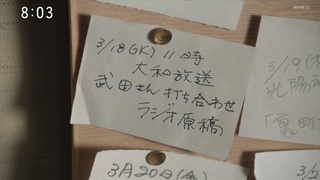 8:03
NHK G
3/18(水) 11時
大和放送
武田さん打ち合わせ
ラジオ原稿
3/19(木
光陽
3月20日(金)
3/2